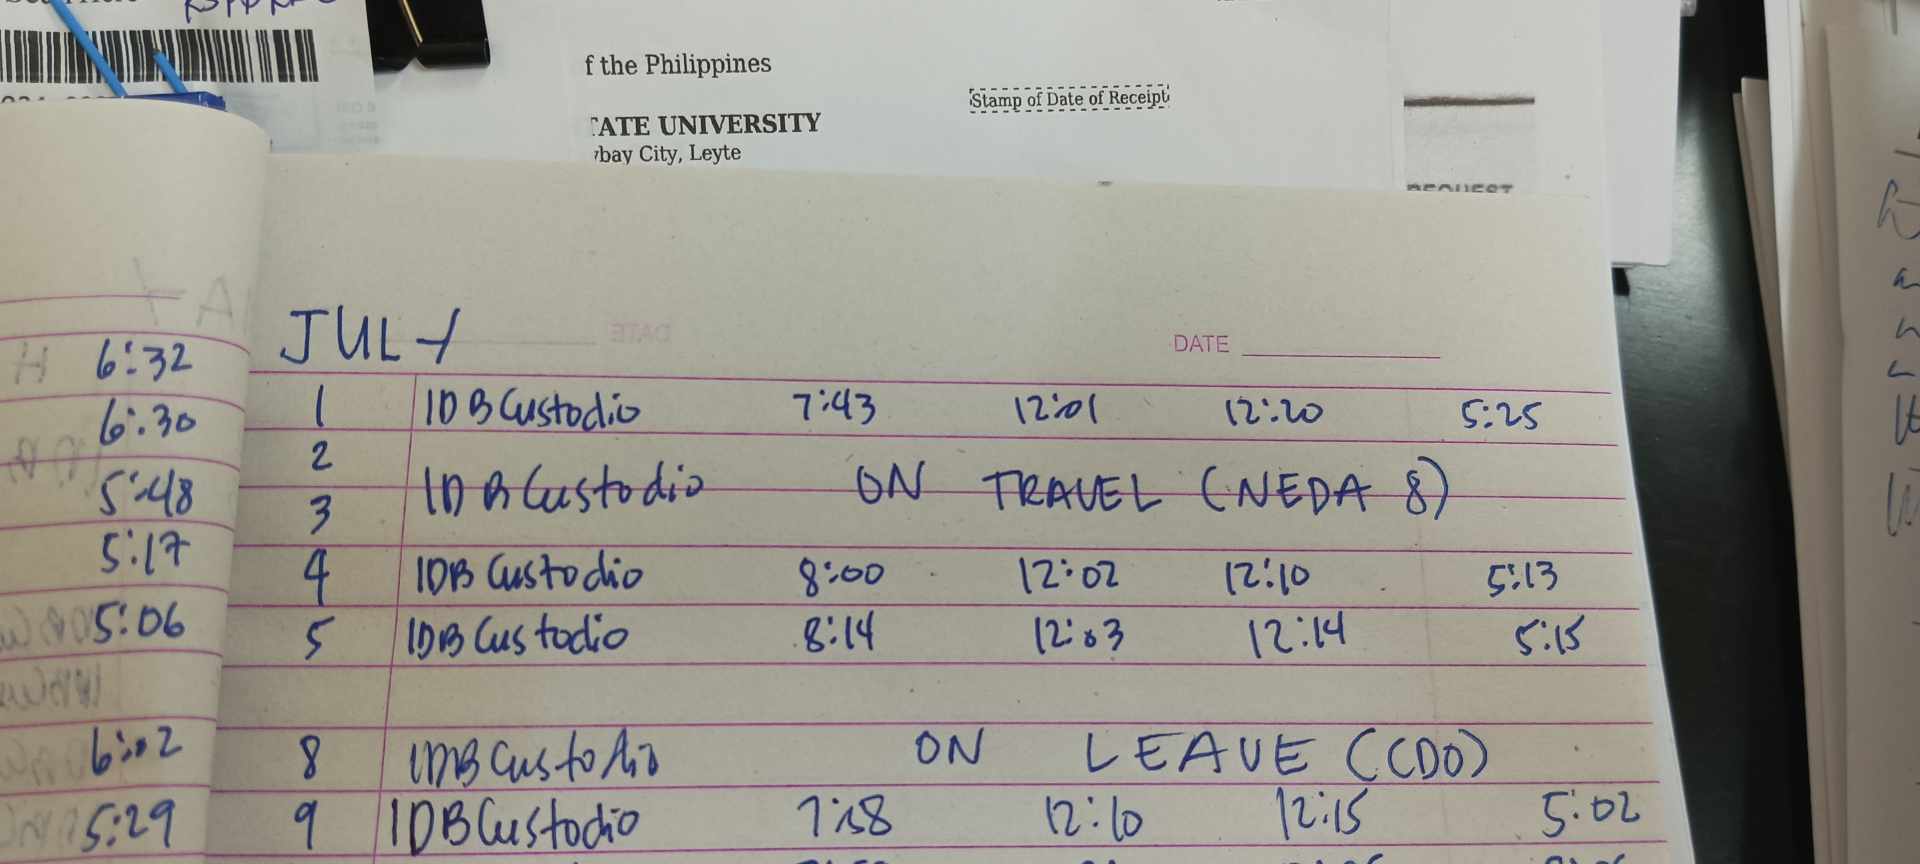 f the Philippines
Stamp of Date of Receipt
TATE UNIVERSITY
ybay City, Leyte
REQUEST
JULY
DATE
6:32
1 IDBCustodio 7:43 12:01 12:20 5:25
6:30
2
IDBCustodio ON TRAVEL (NEDA 8)
5:48
3
5:17
4 IDBCustodio 8:00 12:02 12:10 5:13
5:06
5 IDBCustodio 8:14 12:03 12:14 5:15
6:02
8 IDBCustodio ON LEAVE (CDO)
5:29
9 IDBCustodio 7:58 12:10 12:15 5:02